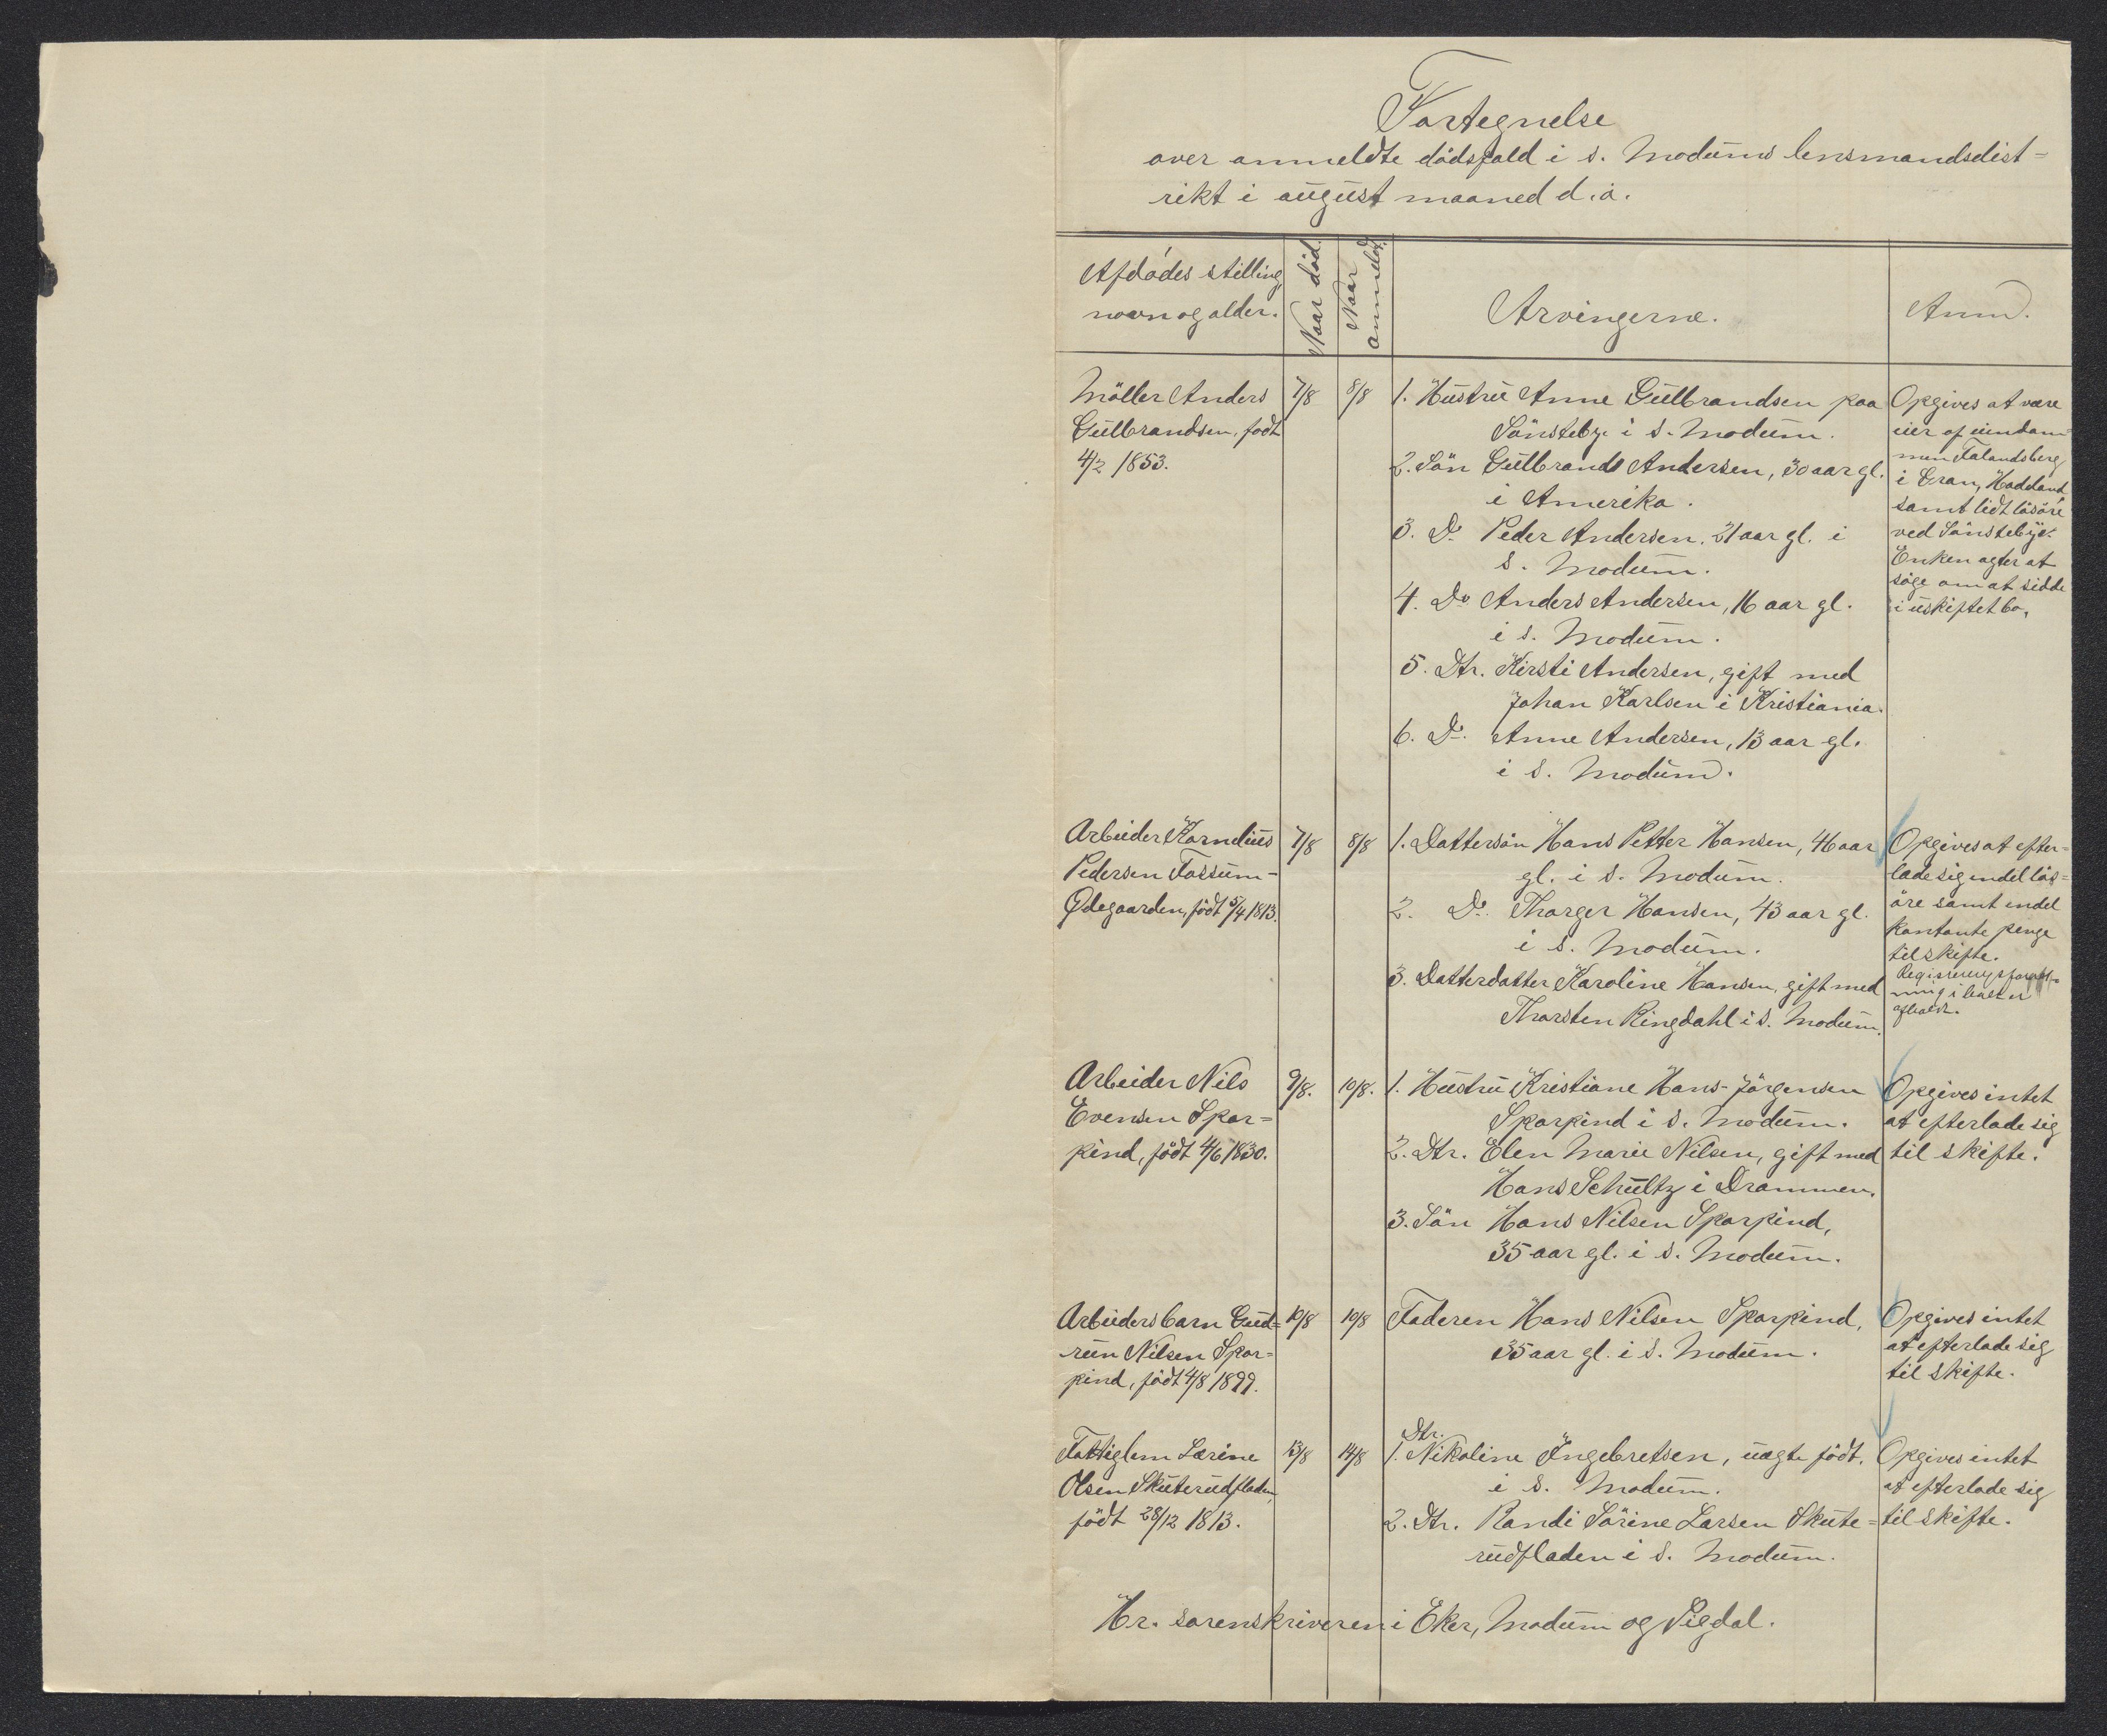 Fortegnelse
over anmeldte dödsfald i s. Modums lensmandsdist-
rikt i august maaned d.a.
Afdödes stilling,
navn og alder.
Naar död.
Naar
anmeldt.
Arvingerne.
Anm.
Möller Anders
Gulbrandsen, födt
4/2 1853.
7/8
8/8
1. Hustru Anne Gulbrandsen paa
Sönsteby i s. Modum.
2. Sön Gulbrand Andersen, 30 aar gl.
i Amerika.
3. Do Peder Andersen, 21 aar gl. i
s. Modum.
4. Do Anders Andersen, 16 aar gl.
i s. Modum.
5. Dtr. Kirsti Andersen, gift med
Johan Karlsen i Kristiania.
6. Do. Anne Andersen, 13 aar gl.
i s. Modum.
Opgives at være
eier af eiendom-
men Falandsberg
i Gran, Hadeland,
samt lidt lösöre
ved Sönstebye.
Enken agter at
söge om at sidde
i uskiftet bo.
Arbeider Kornelius
Pedersen Fossum-
Ødegaarden, födt 5/4 1813.
7/8
8/8
1. Dattersön Hans Petter Hansen, 46 aar
gl. i s. Modum.
2. Do. Thorger Hansen, 43 aar gl.
i s. Modum.
3. Datterdatter Karoline Hansen, gift med
Thorsten Ringdahl i s. Modum.
Opgives at efter-
lade sig endel lös-
öre samt endel
kontante penge
til skifte.
i boet er
afholdt.
Arbeider Nils
Evensen Spar-
kind, födt 4/6 1830.
9/8.
10/8.
1. Hustru Kristiane Hans-Jörgensen
Sparkind i s. Modum.
2. Dtr. Elen Marie Nilsen, gift med
Hans Schultz i Drammen.
3. Sön Hans Nilsen Sparkind,
35 aar gl. i s. Modum.
Opgives intet
at efterlade sig
til skifte.
Arbeidersbarn Gud-
run Nilsen Spar-
kind, födt 4/8 1899.
10/8
10/8
Faderen Hans Nilsen Sparkind,
35 aar gl. i s. Modum.
Opgives intet
at efterlade sig
til skifte.
Fattiglem Lærine
Olsen Skuterudfladen,
födt 28/12 1813.
13/8
14/8
Dtr.
1. Nikoline Ingebretsen, uægte födt,
i s. Modum.
2. Dtr. Randi Sörine Larsen Skute-
rudfladen i s. Modum.
Opgives intet
at efterlade sig
til skifte.
Hr. sorenskriveren i Eker, Modum og Sigdal.